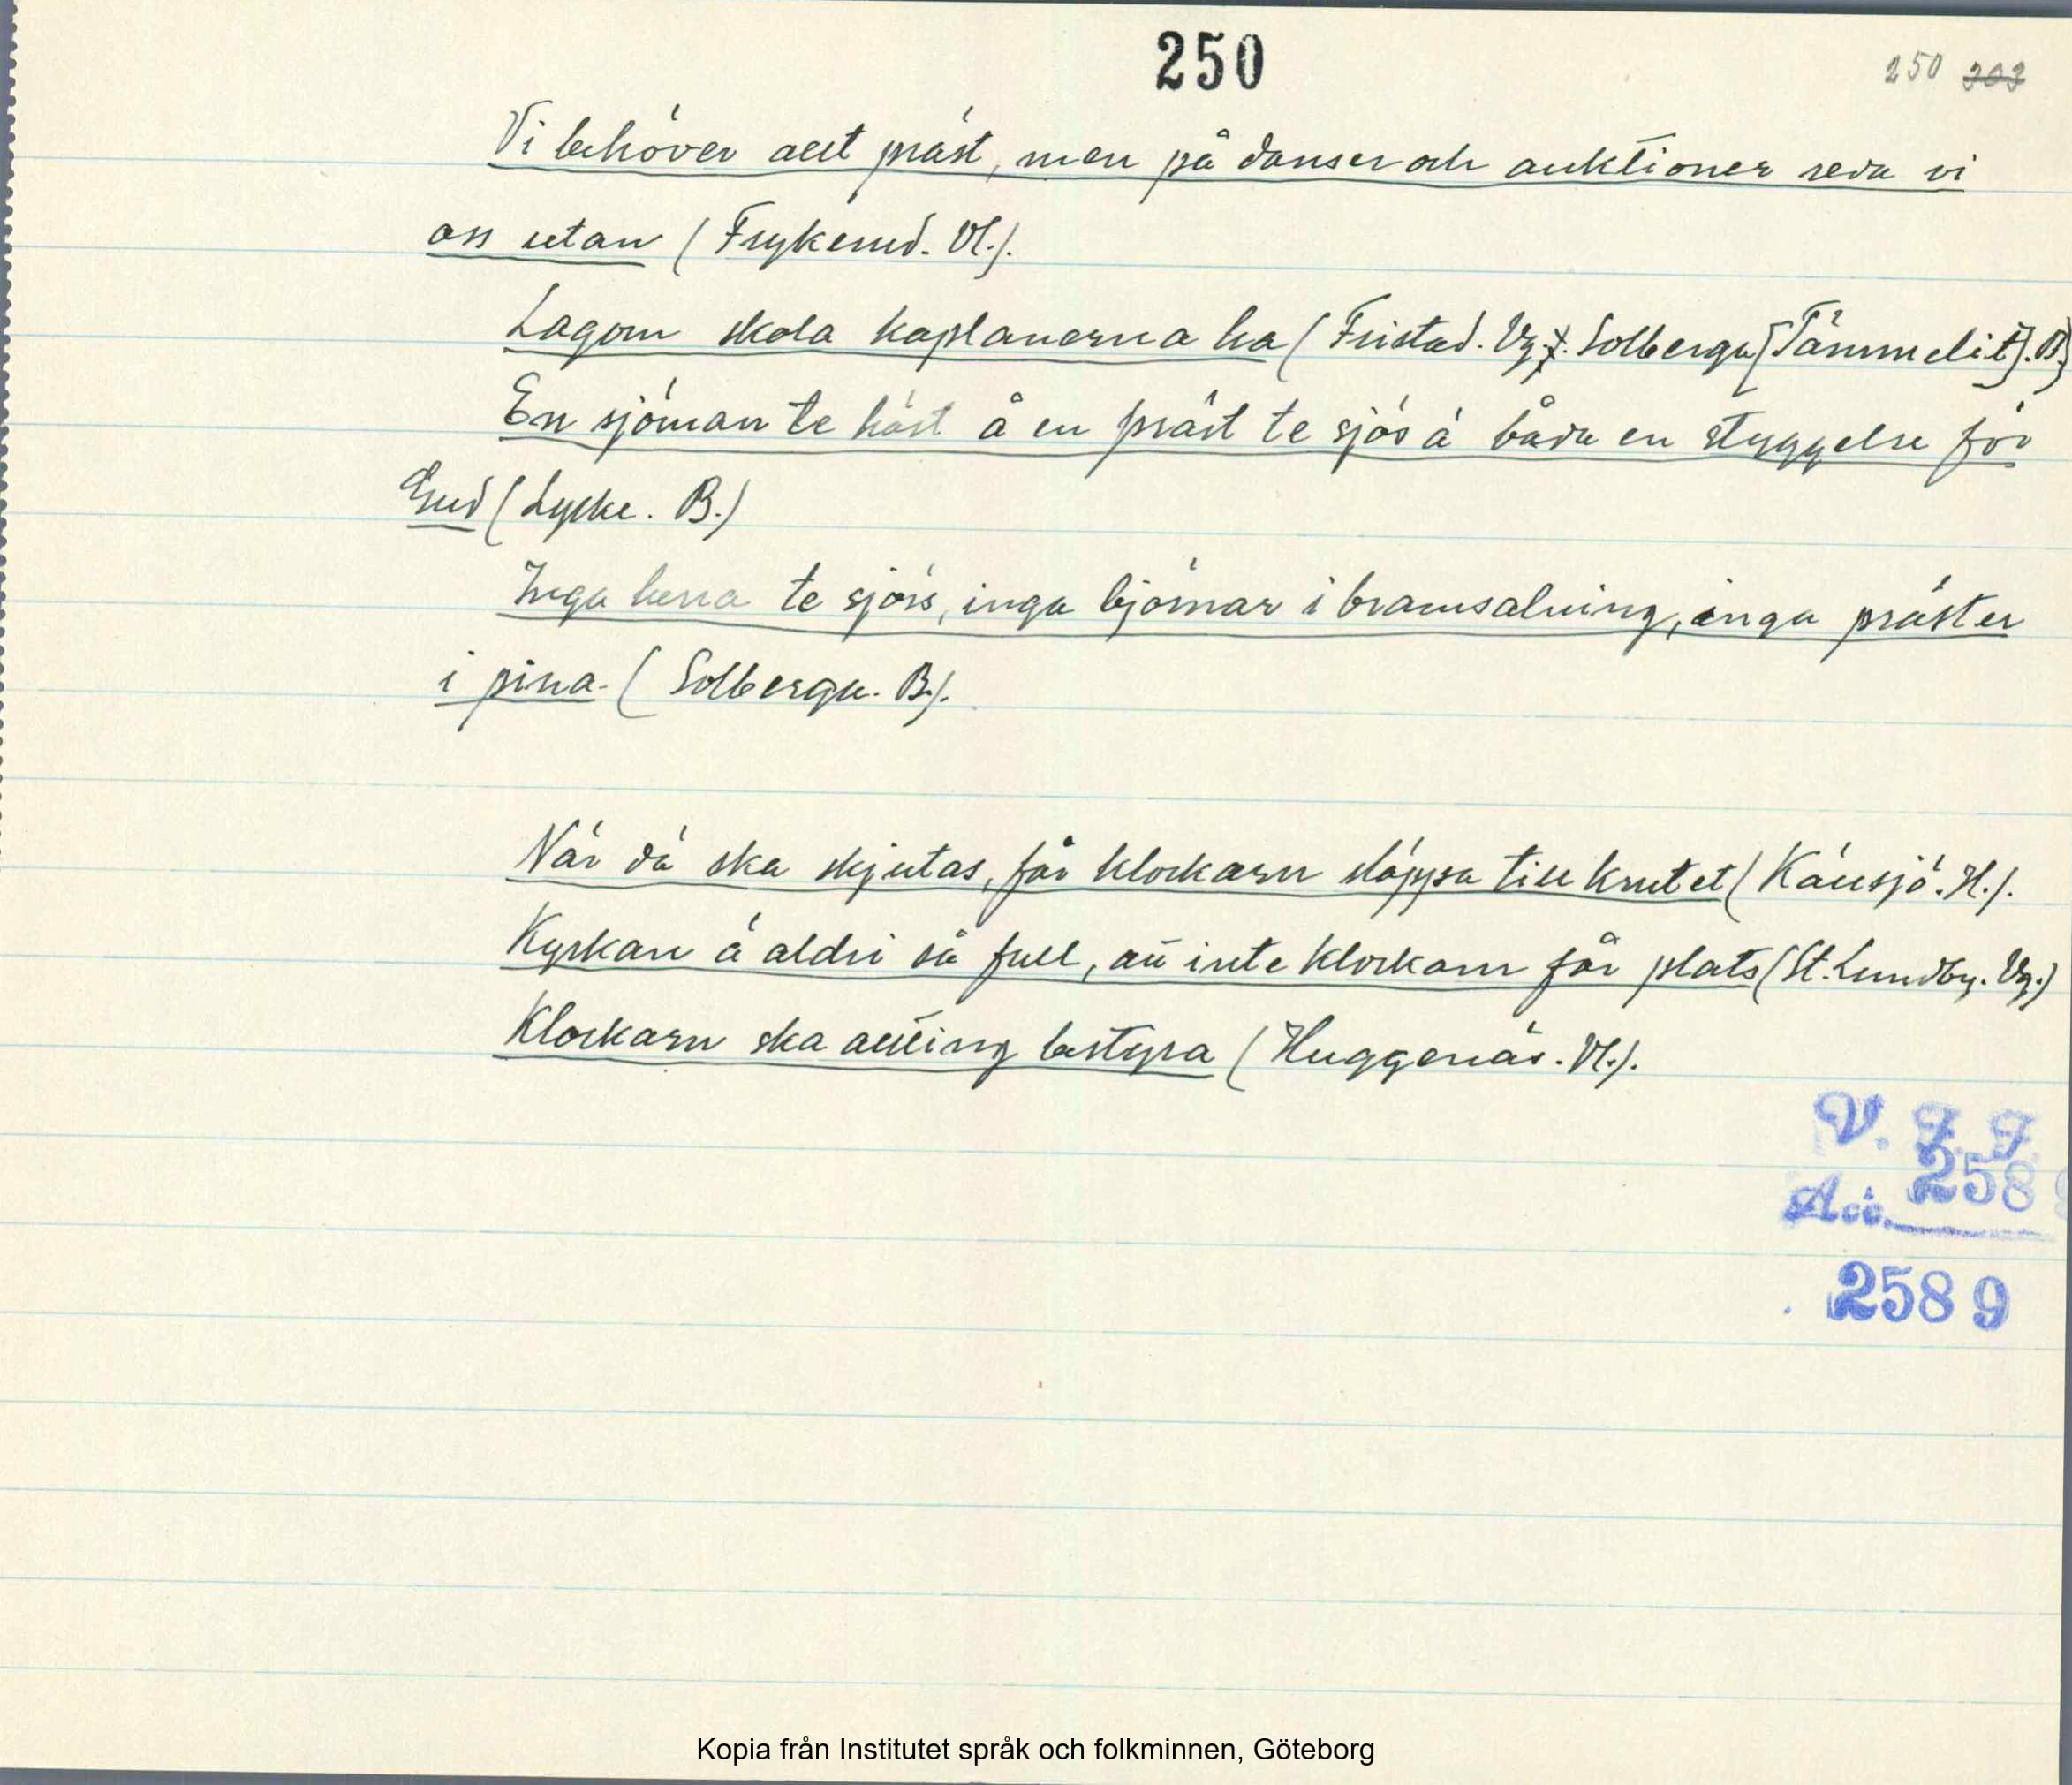 250
250 203
Vi behöver allt präst, men på danser och auktioner reda vi
oss utan (Frykerud. Vl.).
Lagom skola kaplanerna ha (Fristad. Vg. Solberga [Tämmelit]. B.)
En sjöman te häst å en präst te sjös ä båda en styggelse för
Gud (Lycke. B.)
Inga herra te sjöss, inga björnar i bramsalning, inga präster
i pina. (Solberga. B.).
När dä ska skjutas, får klockarn släppa till krutet (Känsjö. H.).
Kyrkan ä aldri så full, att inte klockarn får plats (St. Lundby. Vg.)
Klockarn ska allting bestyra (Huggenäs. Vl.).
V. F. F.
Acc. 258
2589
Kopia från Institutet språk och folkminnen, Göteborg